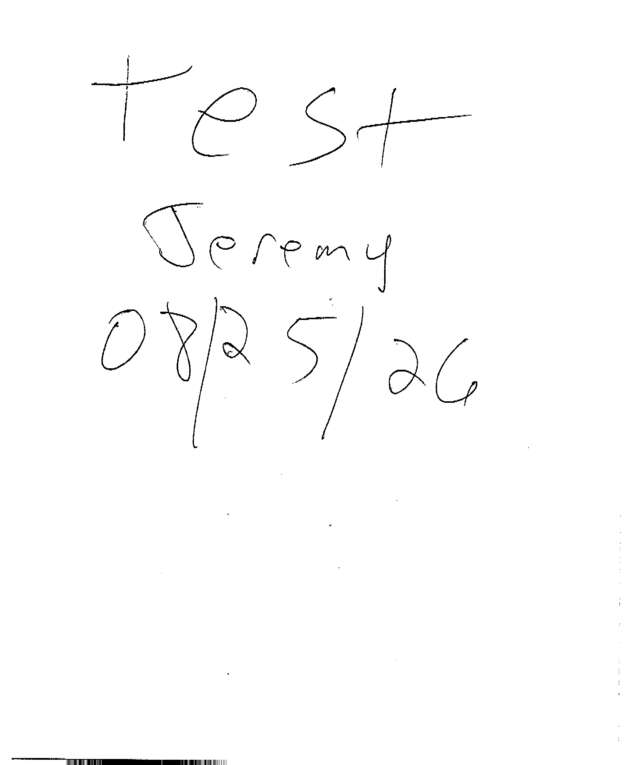 test
Jeremy
08/25/26